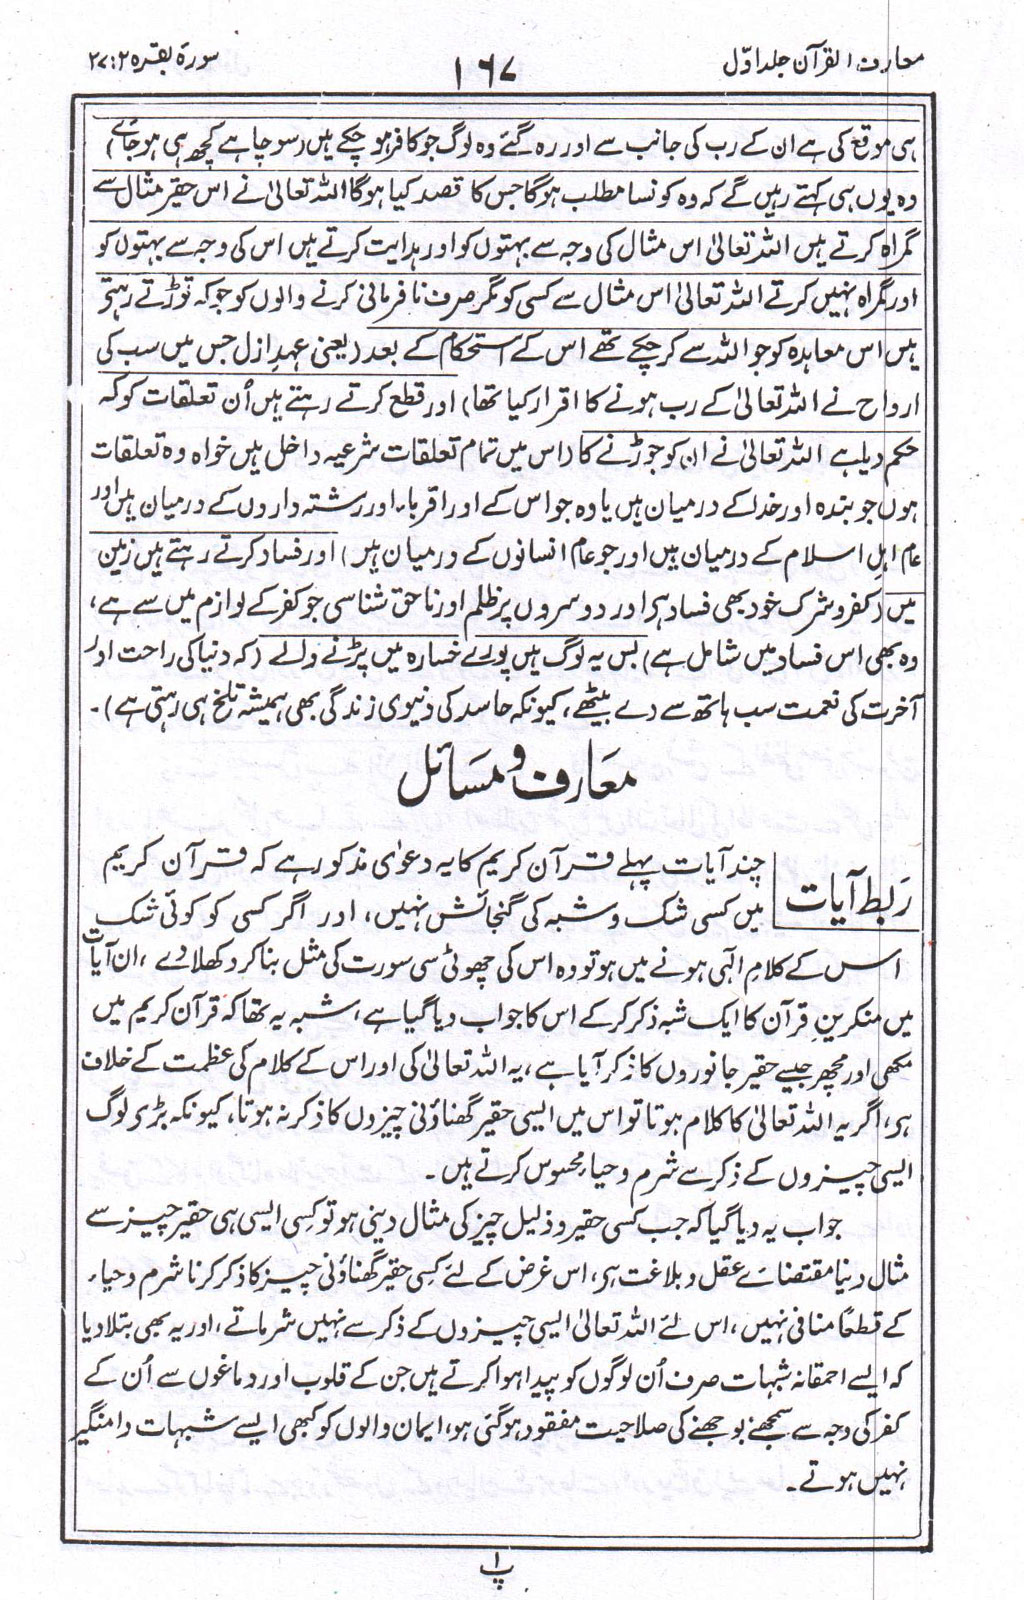 معارف القرآن جلد اوّل
۱۶۷
سورۂ بقرہ ۲ : ۲۷
ہی موقع کی ہے ان کے رب کی جانب سے اور رہ گئے وہ لوگ جو کافر ہو چکے ہیں (سو چاہے کچھ ہی ہو جائے)
وہ یوں ہی کہتے رہیں گے کہ وہ کونسا مطلب ہوگا جس کا قصد کیا ہوگا اللہ تعالیٰ نے اس حقیر مثال سے
گمراہ کرتے ہیں اللہ تعالیٰ اس مثال کی وجہ سے بہتوں کو اور ہدایت کرتے ہیں اس کی وجہ سے بہتوں کو
اور گمراہ نہیں کرتے اللہ تعالیٰ اس مثال سے کسی کو مگر صرف نافرمانی کرنے والوں کو جو کہ توڑتے رہتے
ہیں اس معاہدہ کو جو اللہ سے کر چکے تھے اس کے استحکام کے بعد (یعنی عہدِ ازل جس میں سب کی
ارواح نے اللہ تعالیٰ کے رب ہونے کا اقرار کیا تھا) اور قطع کرتے رہتے ہیں اُن تعلقات کو کہ
حکم دیا ہے اللہ تعالیٰ نے ان کو جوڑنے کا (اس میں تمام تعلقات شرعیہ داخل ہیں خواہ وہ تعلقات
ہوں جو بندہ اور خدا کے درمیان ہیں یا وہ جو اس کے اور اقرباء اور رشتہ داروں کے درمیان ہیں اور
عام اہلِ اسلام کے درمیان ہیں اور جو عام انسانوں کے درمیان ہیں) اور فساد کرتے رہتے ہیں زمین
میں (کفر و شرک خود بھی فساد ہی اور دوسروں پر ظلم اور ناحق شناسی جو کفر کے لوازم میں سے ہے،
وہ بھی اس فساد میں شامل ہے) بس یہ لوگ ہیں پورے خسارہ میں پڑنے والے (کہ دنیا کی راحت اور
آخرت کی نعمت سب ہاتھ سے دے بیٹھے، کیونکہ حاسد کی دنیوی زندگی بھی ہمیشہ تلخ ہی رہتی ہے)۔
معارف و مسائل
ربط آیات
چند آیات پہلے قرآن کریم کا یہ دعوٰی مذکور ہے کہ قرآن کریم
میں کسی شک و شبہ کی گنجائش نہیں، اور اگر کسی کو کوئی شک
اس کے کلامِ الٰہی ہونے میں ہو تو وہ اس کی چھوٹی سی سورت کی مثل بنا کر دکھلا دے، ان آیات
میں منکرینِ قرآن کا ایک شبہ ذکر کر کے اس کا جواب دیا گیا ہے، شبہ یہ تھا کہ قرآن کریم میں
مکھی اور مچھر جیسے حقیر جانوروں کا ذکر آیا ہے، یہ اللہ تعالیٰ کی اور اس کے کلام کی عظمت کے خلاف
ہی، اگر یہ اللہ تعالیٰ کا کلام ہوتا تو اس میں ایسی حقیر گھناؤنی چیزوں کا ذکر نہ ہوتا، کیونکہ بڑی لوگ
ایسی چیزوں کے ذکر سے شرم و حیاء محسوس کرتے ہیں۔
جواب یہ دیا گیا کہ جب کسی حقیر و ذلیل چیز کی مثال دینی ہو تو کسِی ایسی ہی حقیر چیز سے
مثال دینا مقتضائے عقل و بلاغت ہی، اس غرض کے لئے کسِی حقیر گھناؤنی چیز کا ذکر کرنا شرم و حیاء
کے قطعًا منافی نہیں، اس لئے اللہ تعالیٰ ایسی چیزوں کے ذکر سے نہیں شرماتے، اور یہ بھی بتلا دیا
کہ ایسے احمقانہ شبہات صرف اُن لوگوں کو پیدا ہوا کرتے ہیں جن کے قلوب اور دماغوں سے اُن کے
کفر کی وجہ سے سمجھنے بوجھنے کی صلاحیت مفقود ہو گئی ہو، ایمان والوں کو کبھی ایسے شبہات دامنگیر
نہیں ہوتے۔
پ ۱